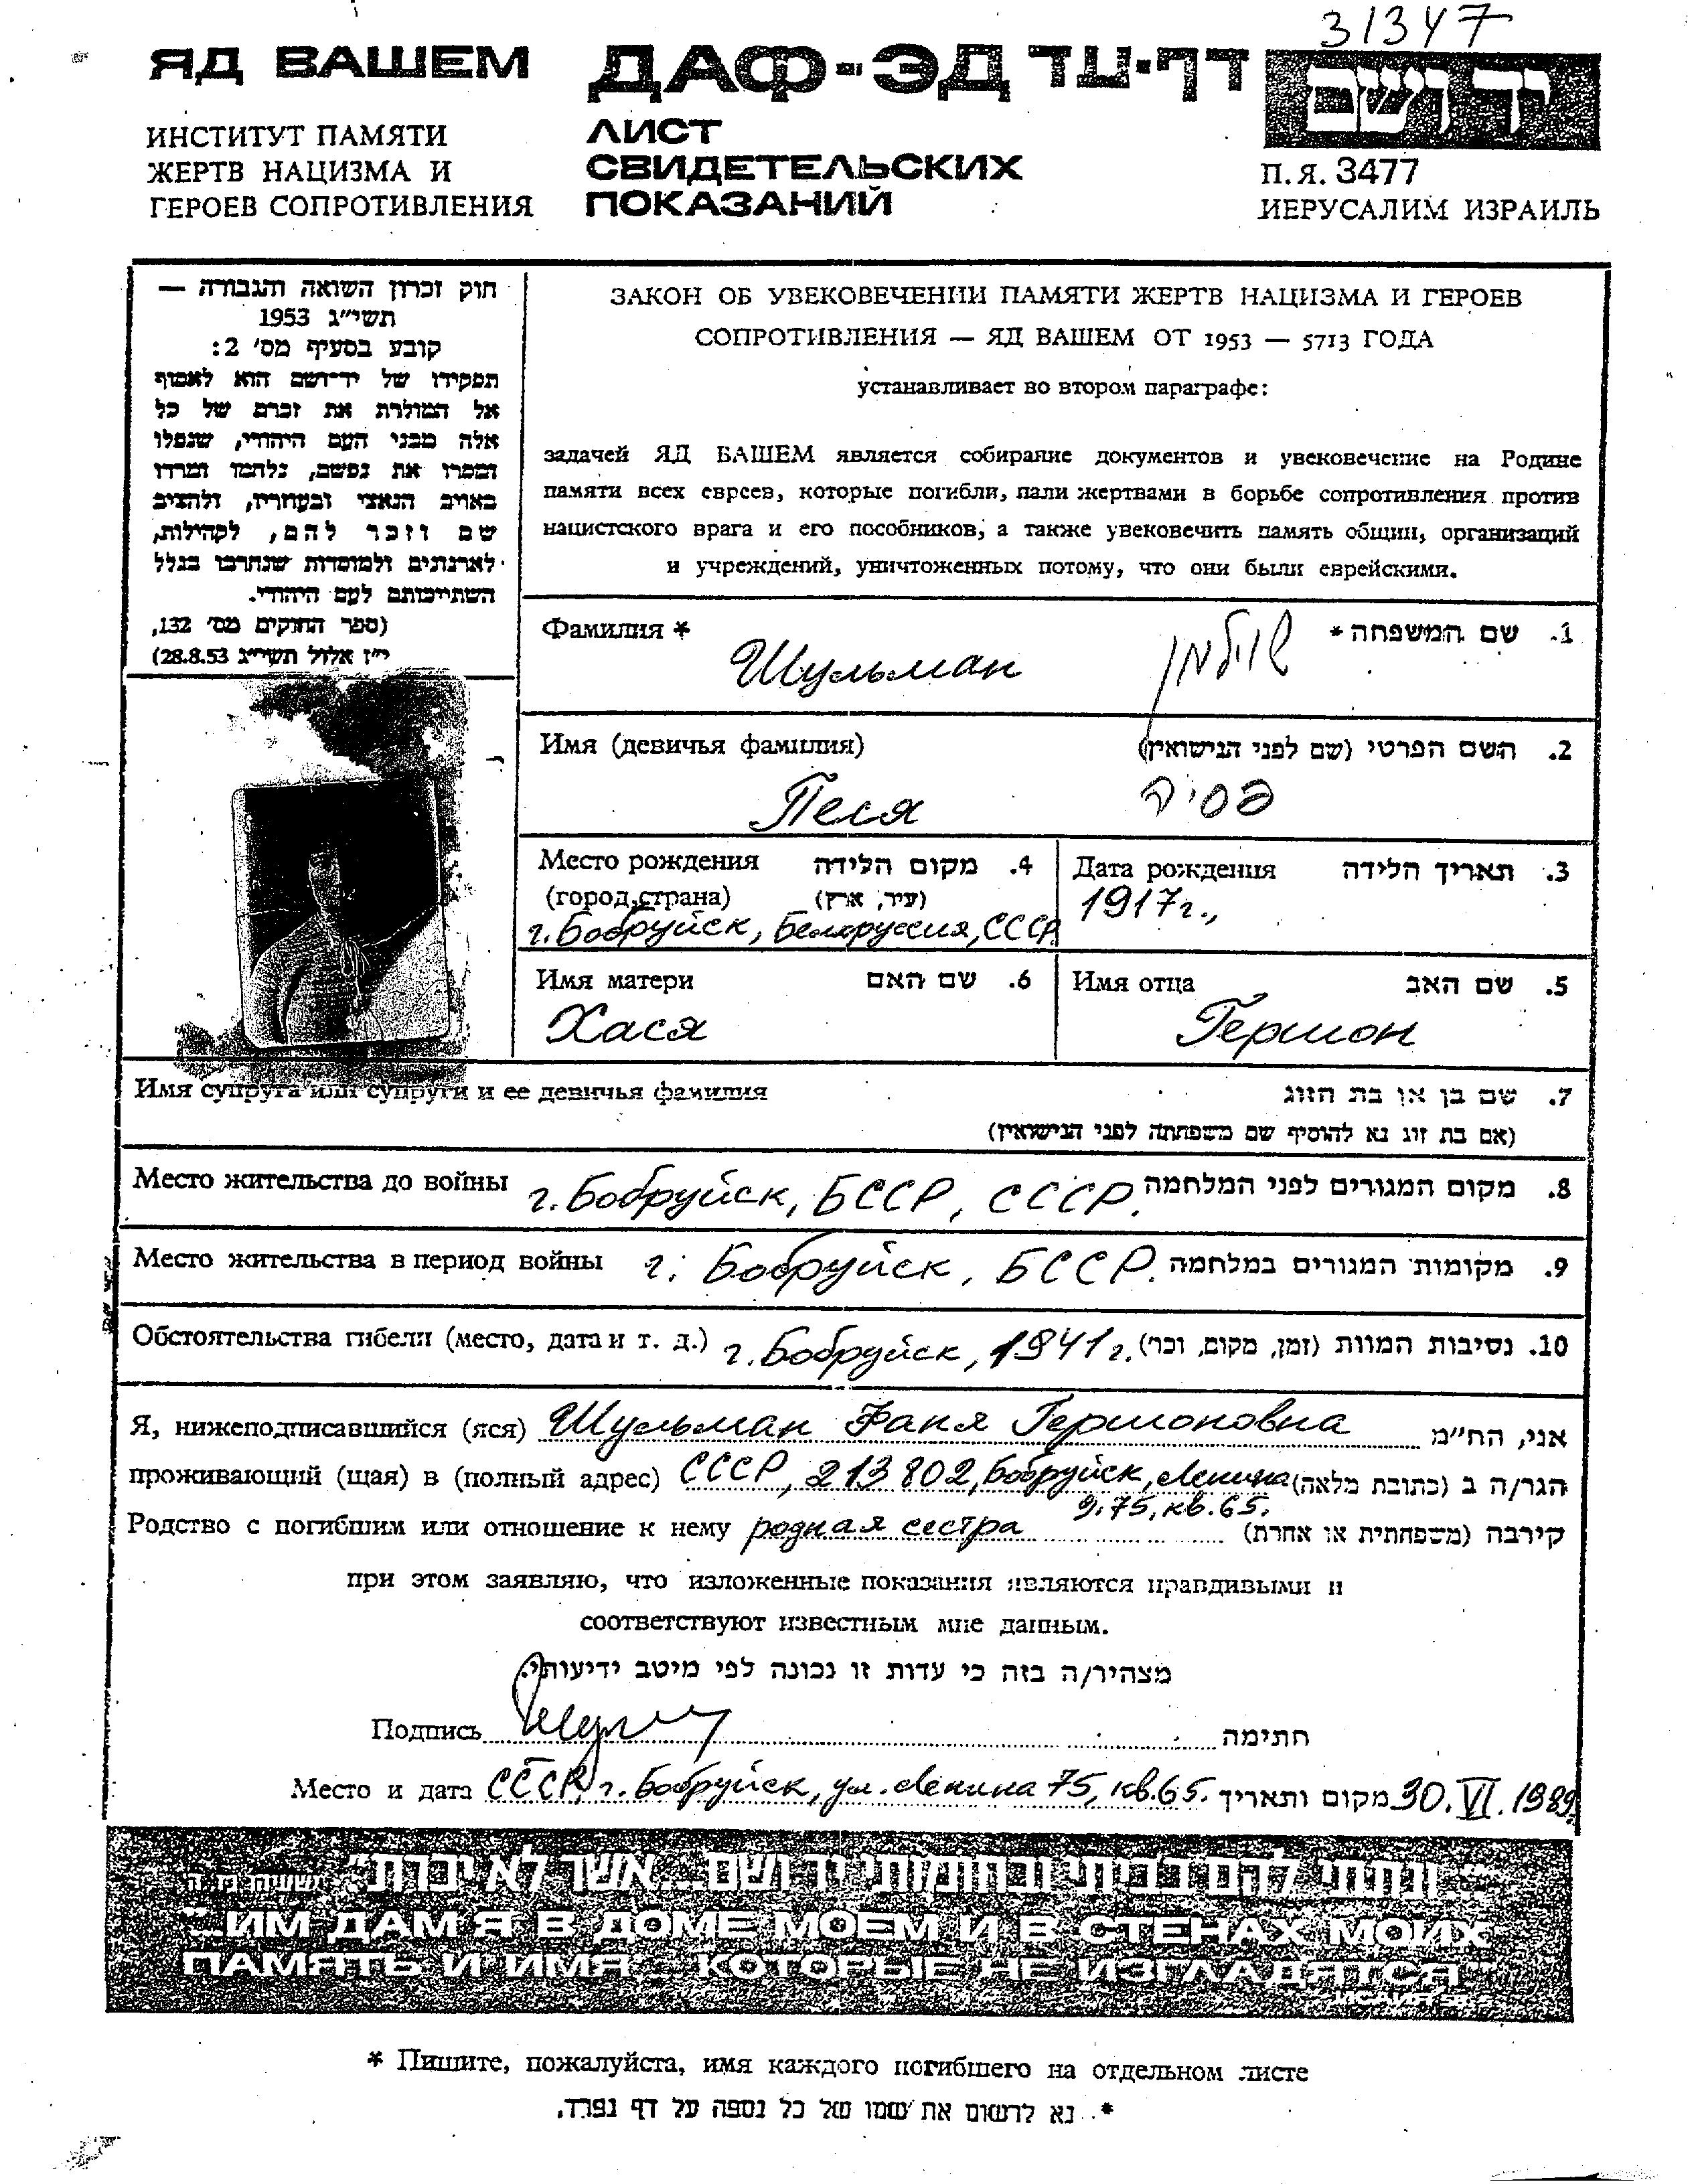 31347
ЯД ВАШЕМ ДАФ-ЭД דף-עד יד ושם
ИНСТИТУТ ПАМЯТИ
ЖЕРТВ НАЦИЗМА И
ГЕРОЕВ СОПРОТИВЛЕНИЯ
ЛИСТ
СВИДЕТЕЛЬСКИХ
ПОКАЗАНИЙ
П.Я. 3477
ИЕРУСАЛИМ ИЗРАИЛЬ
חוק זכרון השואה והגבורה —
תשי"ג 1953
קובע בסעיף מס' 2:
תפקידו של יד-ושם הוא לאסוף
אל המולדת את זכרם של כל
אלה מבני העם היהודי, שנפלו
ומסרו את נפשם, נלחמו ומרדו
באויב הנאצי ובעוזריו, ולהציב
שם וזכר להם, לקהילות,
לארגונים ולמוסדות שנחרבו בגלל
השתייכותם לעם היהודי.
(ספר החוקים מס' 132,
י"ז אלול תשי"ג 28.8.53)
ЗАКОН ОБ УВЕКОВЕЧЕНИИ ПАМЯТИ ЖЕРТВ НАЦИЗМА И ГЕРОЕВ
СОПРОТИВЛЕНИЯ — ЯД ВАШЕМ ОТ 1953 — 5713 ГОДА
устанавливает во втором параграфе:
задачей ЯД ВАШЕМ является собирание документов и увековечение на Родине
памяти всех евреев, которые погибли, пали жертвами в борьбе сопротивления против
нацистского врага и его пособников, а также увековечить память общин, организаций
и учреждений, уничтоженных потому, что они были еврейскими.
Фамилия * 1. שם המשפחה *
Шульман שולמן
Имя (девичья фамилия) 2. השם הפרטי (שם לפני הנישואין)
Песя פסיה
Место рождения 4. מקום הלידה
(город,страна) (עיר, ארץ)
г. Бобруйск, Белоруссия, СССР
Дата рождения 3. תאריך הלידה
1917г.,
Имя матери 6. שם האם
Хася
Имя отца 5. שם האב
Гермон
Имя супруга или супруги и ее девичья фамилия 7. שם בן או בת הזוג
(אם בת זוג נא להוסיף שם משפחתה לפני הנישואין)
Место жительства до войны г. Бобруйск, БССР, СССР. 8. מקום המגורים לפני המלחמה
Место жительства в период войны г. Бобруйск, БССР. 9. מקומות המגורים במלחמה
Обстоятельства гибели (место, дата и т. д.) г. Бобруйск, 1941г. 10. נסיבות המוות (זמן, מקום, וכו')
Я, нижеподписавшийся (яся) Шульман Фаня Гермоновна אני, הח"מ
проживающий (щая) в (полный адрес) СССР, 213802, Бобруйск, Ленина הגר/ה ב (כתובת מלאה)
д. 75, кв. 65.
Родство с погибшим или отношение к нему родная сестра קירבה (משפחתית או אחרת)
при этом заявляю, что изложенные показания являются правдивыми и
соответствуют известным мне данным.
מצהיר/ה בזה כי עדות זו נכונה לפי מיטב ידיעותי.
Подпись חתימה
Место и дата СССР, г. Бобруйск, ул. Ленина 75, кв. 65. מקום ותאריך 30. VI. 1989.
"...ונתתי להם בביתי ובחומותי יד ושם...אשר לא יכרת" ישעיה נו, ה
"...ИМ ДАМ Я В ДОМЕ МОЕМ И В СТЕНАХ МОИХ
ПАМЯТЬ И ИМЯ... КОТОРЫЕ НЕ ИЗГЛАДЯТСЯ"
* Пишите, пожалуйста, имя каждого погибшего на отдельном листе
* נא לרשום את שמו של כל נספה על דף נפרד.